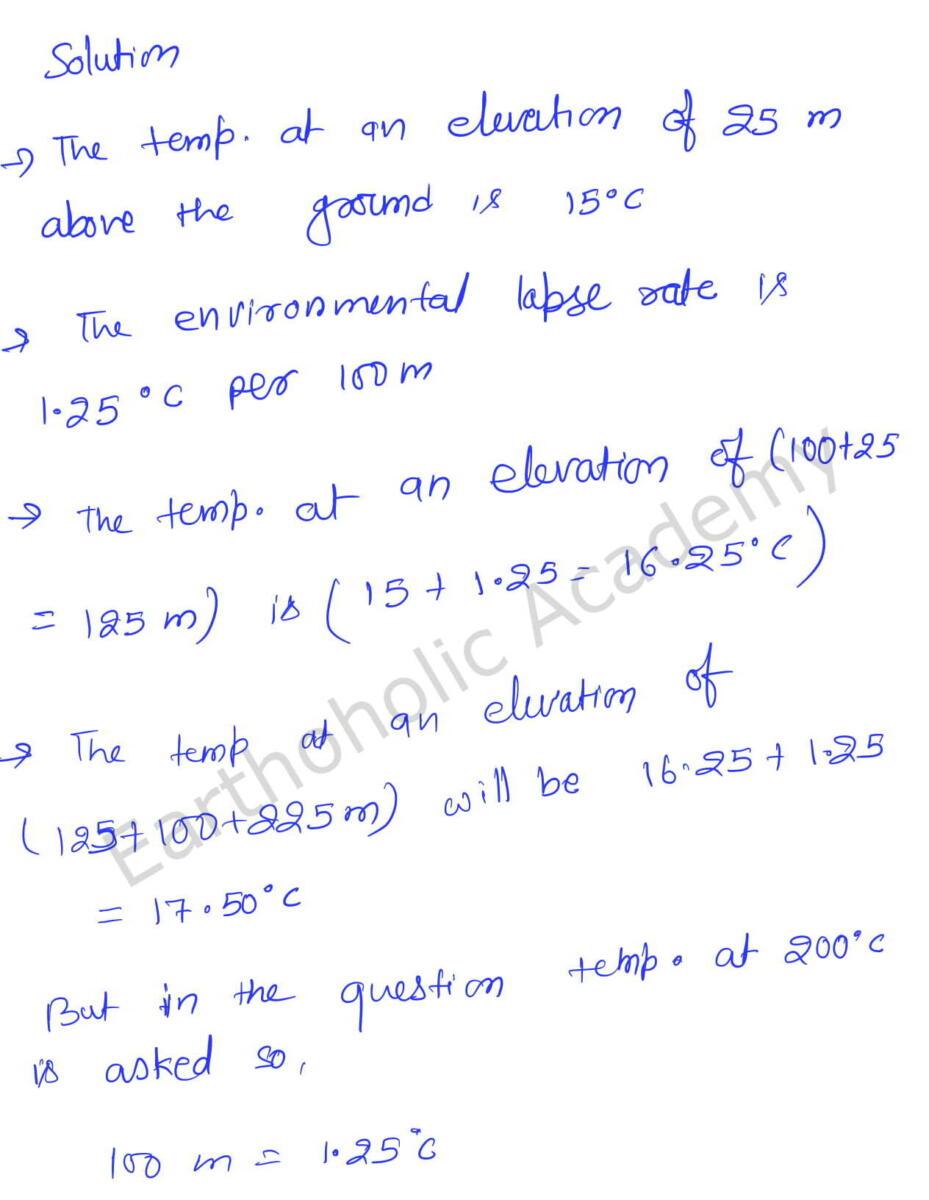 Solution
→ The temp. at an elevation of 25 m
above the ground is 15°C
→ The environmental lapse rate is
1.25°C per 100 m
→ The temp. at an elevation of (100+25
= 125 m) is (15 + 1.25 = 16.25°C)
→ The temp at an elevation of
(125+100+225m) will be 16.25 + 1.25
= 17.50°C
But in the question temp. at 200°C
is asked so,
100 m = 1.25°C
Earthoholic Academy